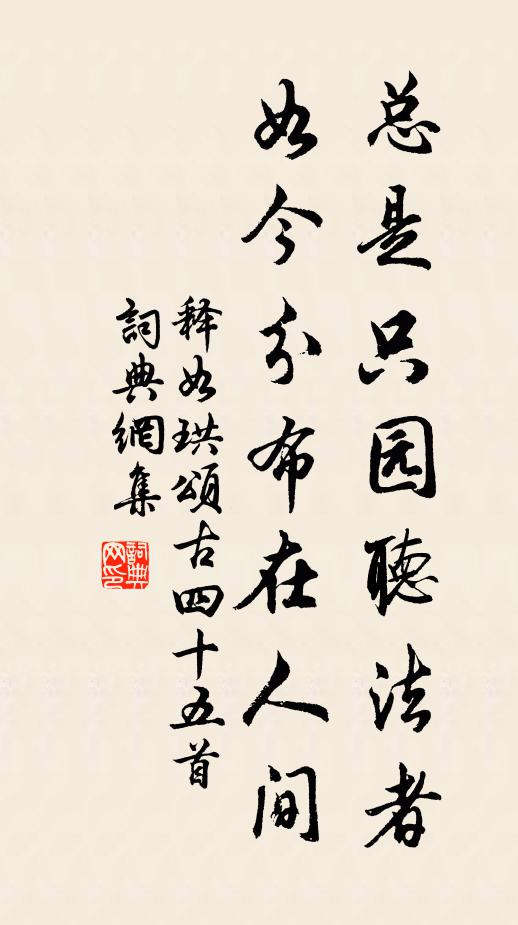 总是只园聽法者
如今分布在人间
释如珙頌古四十五首
詞典網集
詞典网印